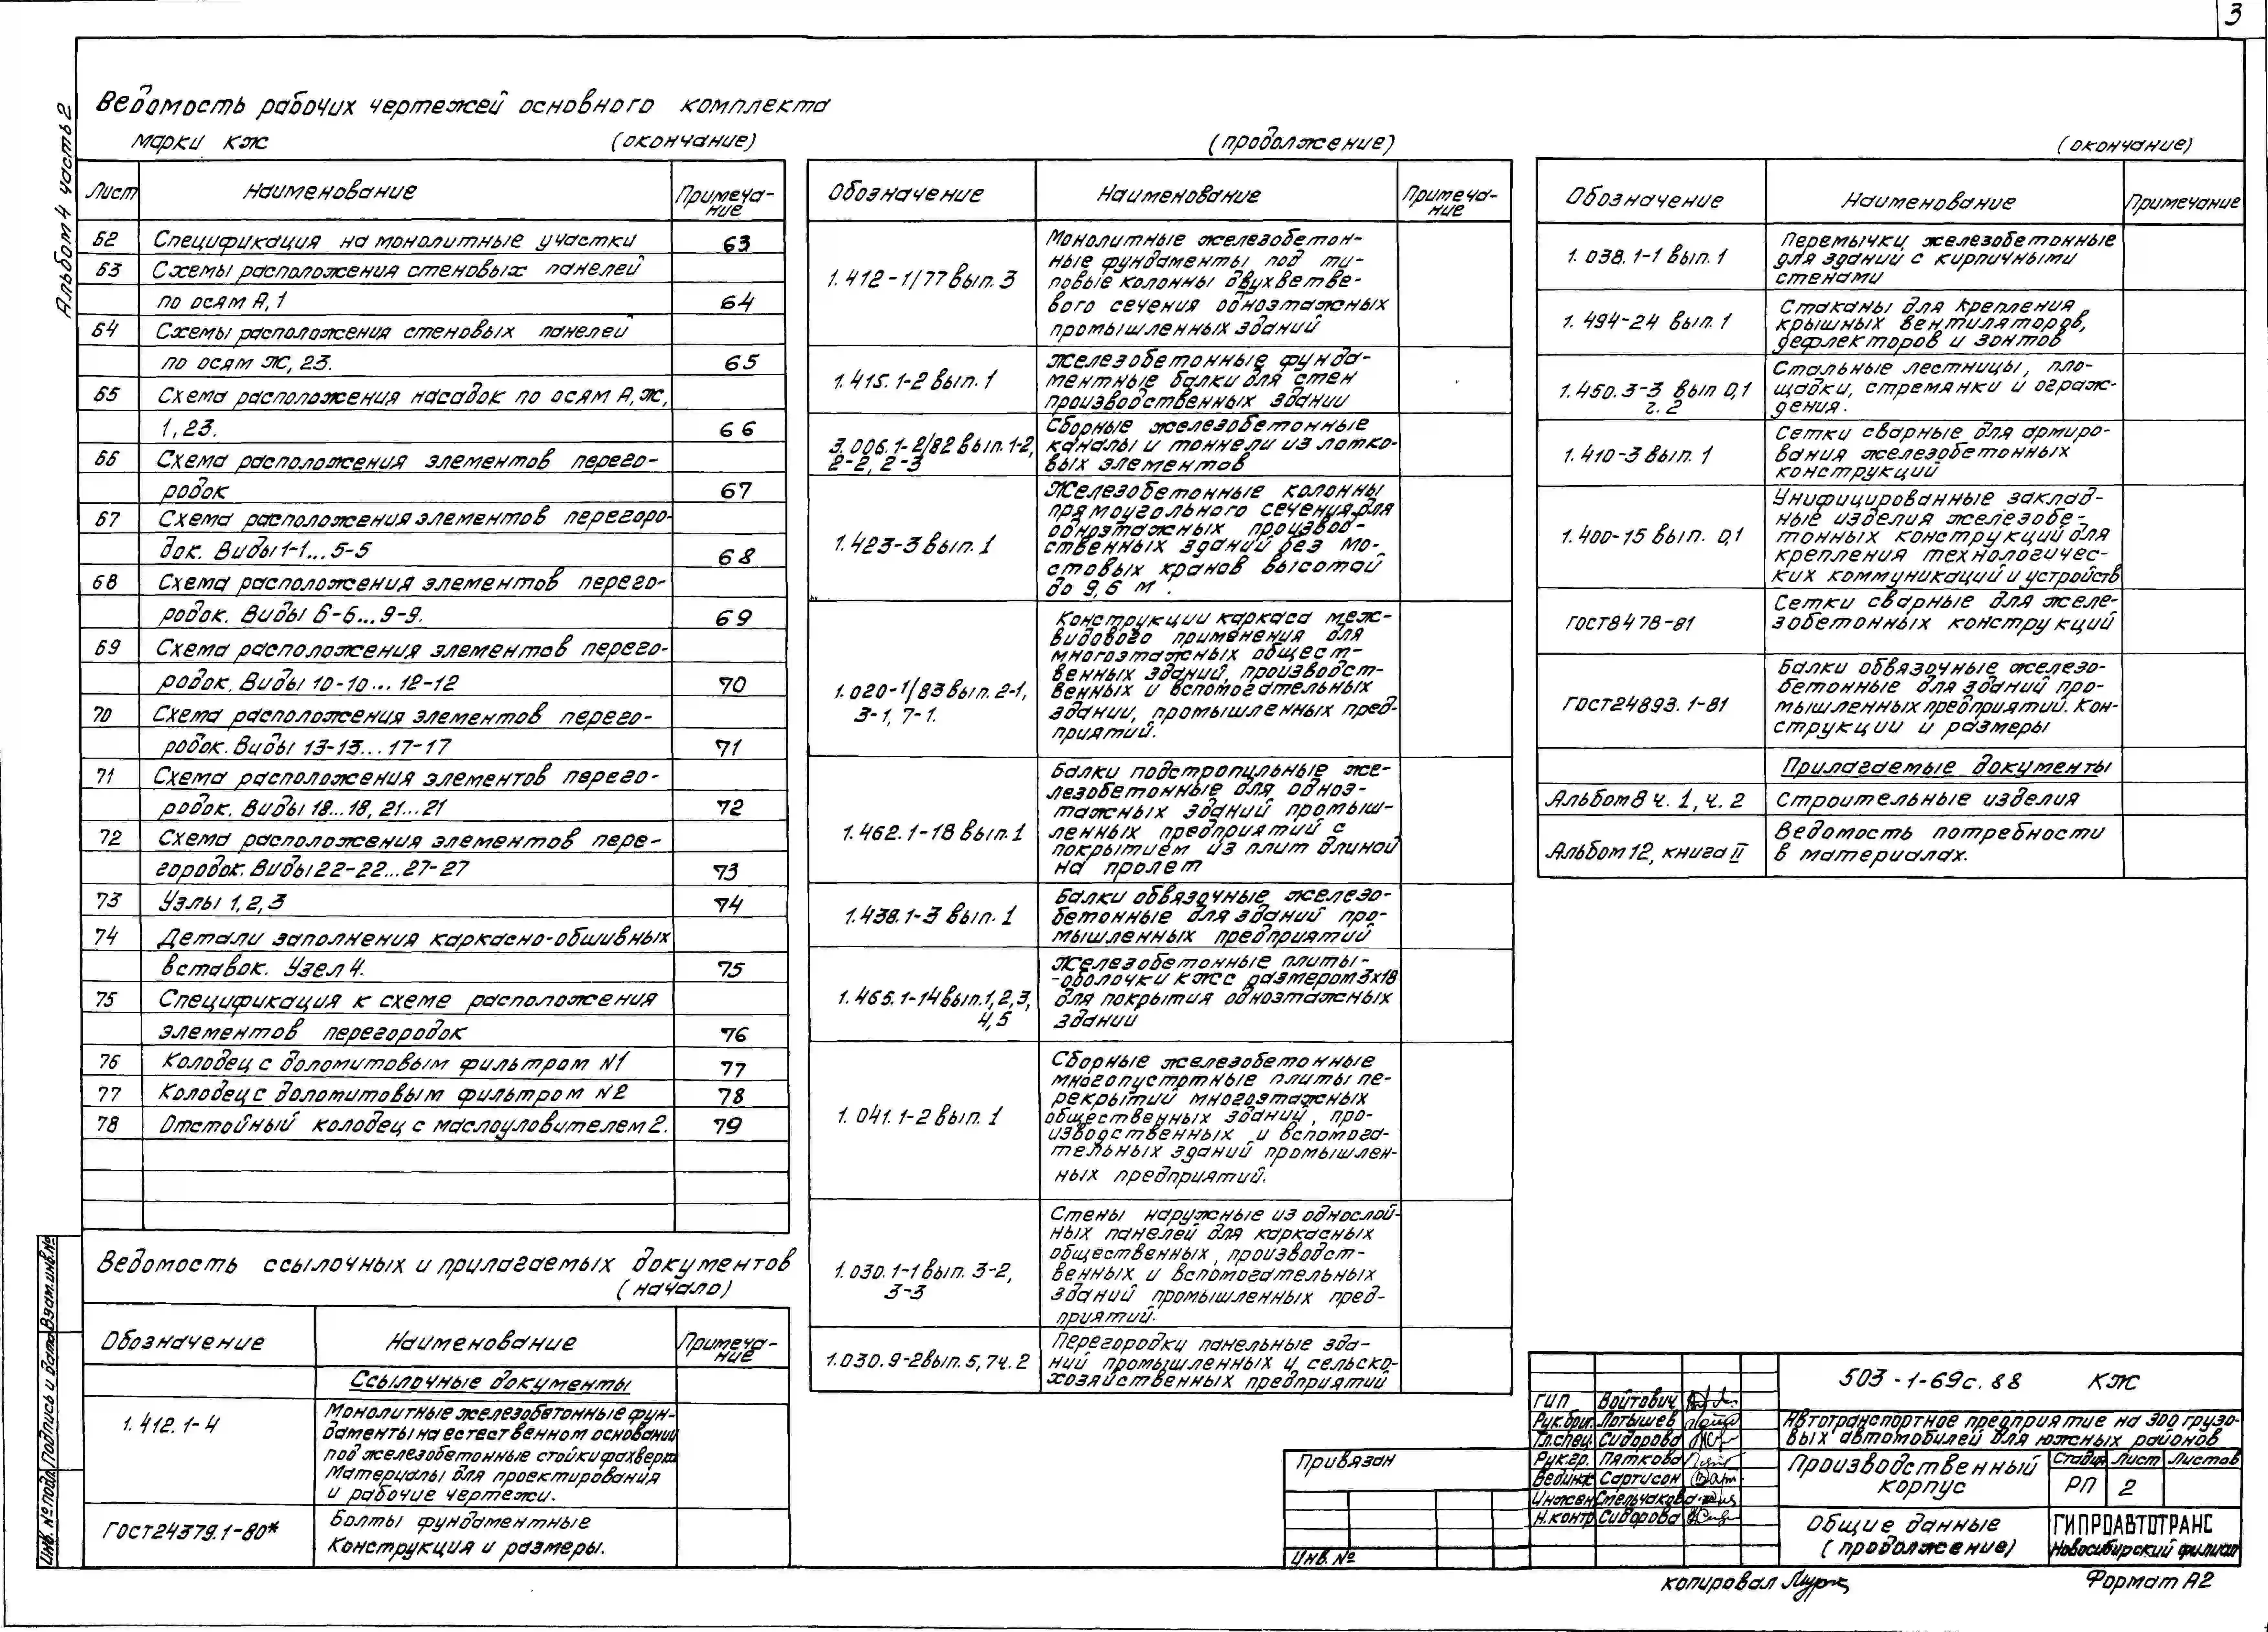 3
Альбом 4 часть 2
Ведомость рабочих чертежей основного комплекта
марки КЖ (окончание)
Лист Наименование Примеча-
ние
62 Спецификация на монолитные участки 63
63 Схемы расположения стеновых панелей
по осям А, 1 64
64 Схемы расположения стеновых панелей
по осям Ж, 23. 65
65 Схема расположения насадок по осям А, Ж,
1, 23. 66
66 Схема расположения элементов перего-
родок 67
67 Схема расположения элементов перегоро-
док. Виды 1-1... 5-5 68
68 Схема расположения элементов перего-
родок. Виды 6-6... 9-9. 69
69 Схема расположения элементов перего-
родок. Виды 10-10... 12-12 70
70 Схема расположения элементов перего-
родок. Виды 13-13... 17-17 71
71 Схема расположения элементов перего-
родок. Виды 18...18, 21...21 72
72 Схема расположения элементов пере-
городок. Виды 22-22...27-27 73
73 Узлы 1, 2, 3 74
74 Детали заполнения каркасно-обшивных
вставок. Узел 4. 75
75 Спецификация к схеме расположения
элементов перегородок 76
76 Колодец с доломитовым фильтром N1 77
77 Колодец с доломитовым фильтром N2 78
78 Отстойный колодец с маслоуловителем 2. 79
Ведомость ссылочных и прилагаемых документов
(начало)
Обозначение Наименование Примеча-
ние
Ссылочные документы
1.412.1-4 Монолитные железобетонные фун-
даменты на естественном основании
под железобетонные стойки фахверка
Материалы для проектирования
и рабочие чертежи.
ГОСТ24379.1-80* Болты фундаментные
Конструкция и размеры.
(продолжение)
Обозначение Наименование Примеча-
ние
1.412-1/77 вып. 3 Монолитные железобетон-
ные фундаменты под ти-
повые колонны двухветве-
вого сечения одноэтажных
промышленных зданий
1.415.1-2 вып. 1 Железобетонные фунда-
ментные балки для стен
производственных зданий
3.006.1-2/82 вып. 1-2,
2-2, 2-3 Сборные железобетонные
каналы и тоннели из лотко-
вых элементов
1.423-3 вып. 1 Железобетонные колонны
прямоугольного сечения для
одноэтажных производ-
ственных зданий без мо-
стовых кранов высотой
до 9,6 м.
1.020-1/83 вып. 2-1,
3-1, 7-1. Конструкции каркаса меж-
видового применения для
многоэтажных общест-
венных зданий, производст-
венных и вспомогательных
зданий, промышленных пред-
приятий.
1.462.1-18 вып. 1 Балки подстропильные же-
лезобетонные для одноэ-
тажных зданий промыш-
ленных предприятий с
покрытием из плит длиной
на пролет
1.438.1-3 вып. 1 Балки обвязочные железо-
бетонные для зданий про-
мышленных предприятий
1.465.1-14 вып. 1, 2, 3,
4, 5 Железобетонные плиты-
-оболочки КЖС размером 3х18
для покрытия одноэтажных
зданий
1.041.1-2 вып. 1 Сборные железобетонные
многопустотные плиты пе-
рекрытий многоэтажных
общественных зданий, про-
изводственных и вспомога-
тельных зданий промышлен-
ных предприятий.
1.030.1-1 вып. 3-2,
3-3 Стены наружные из однослой-
ных панелей для каркасных
общественных, производст-
венных и вспомогательных
зданий промышленных пред-
приятий.
1.030.9-2 вып. 5, 7 ч. 2 Перегородки панельные зда-
ний промышленных и сельско-
хозяйственных предприятий
(окончание)
Обозначение Наименование Примечание
1.038.1-1 вып. 1 Перемычки железобетонные
для зданий с кирпичными
стенами
1.494-24 вып. 1 Стаканы для крепления
крышных вентиляторов,
дефлекторов и зонтов
1.450.3-3 вып 0,1
г. 2 Стальные лестницы, пло-
щадки, стремянки и ограж-
дения.
1.410-3 вып. 1 Сетки сварные для армиро-
вания железобетонных
конструкций
1.400-15 вып. 0,1 Унифицированные заклад-
ные изделия железобе-
тонных конструкций для
крепления технологичес-
ких коммуникаций и устройств
ГОСТ8478-81 Сетки сварные для желе-
зобетонных конструкций
ГОСТ24893.1-81 Балки обвязочные железо-
бетонные для зданий про-
мышленных предприятий. Кон-
струкции и размеры
Прилагаемые документы
Альбом 8 ч. 1, ч. 2 Строительные изделия
Альбом 12, книга II Ведомость потребности
в материалах.
Инв. № подл. Подпись и дата Взам.инв.№
Привязан
Инв. №
ГИП Войтович
Рук.бриг. Лотышев
Гл.спец. Сидорова
Рук.гр. Пяткова
Вед.инж. Сартисон
Инжен Стельчакова
Н.контр Сидорова
503-1-69с.88 КЖ
Автотранспортное предприятие на 300 грузо-
вых автомобилей для южных районов
Производственный
корпус
Стадия Лист Листов
РП 2
Общие данные
(продолжение)
ГИПРОАВТОТРАНС
Новосибирский филиал
копировал
Формат А2